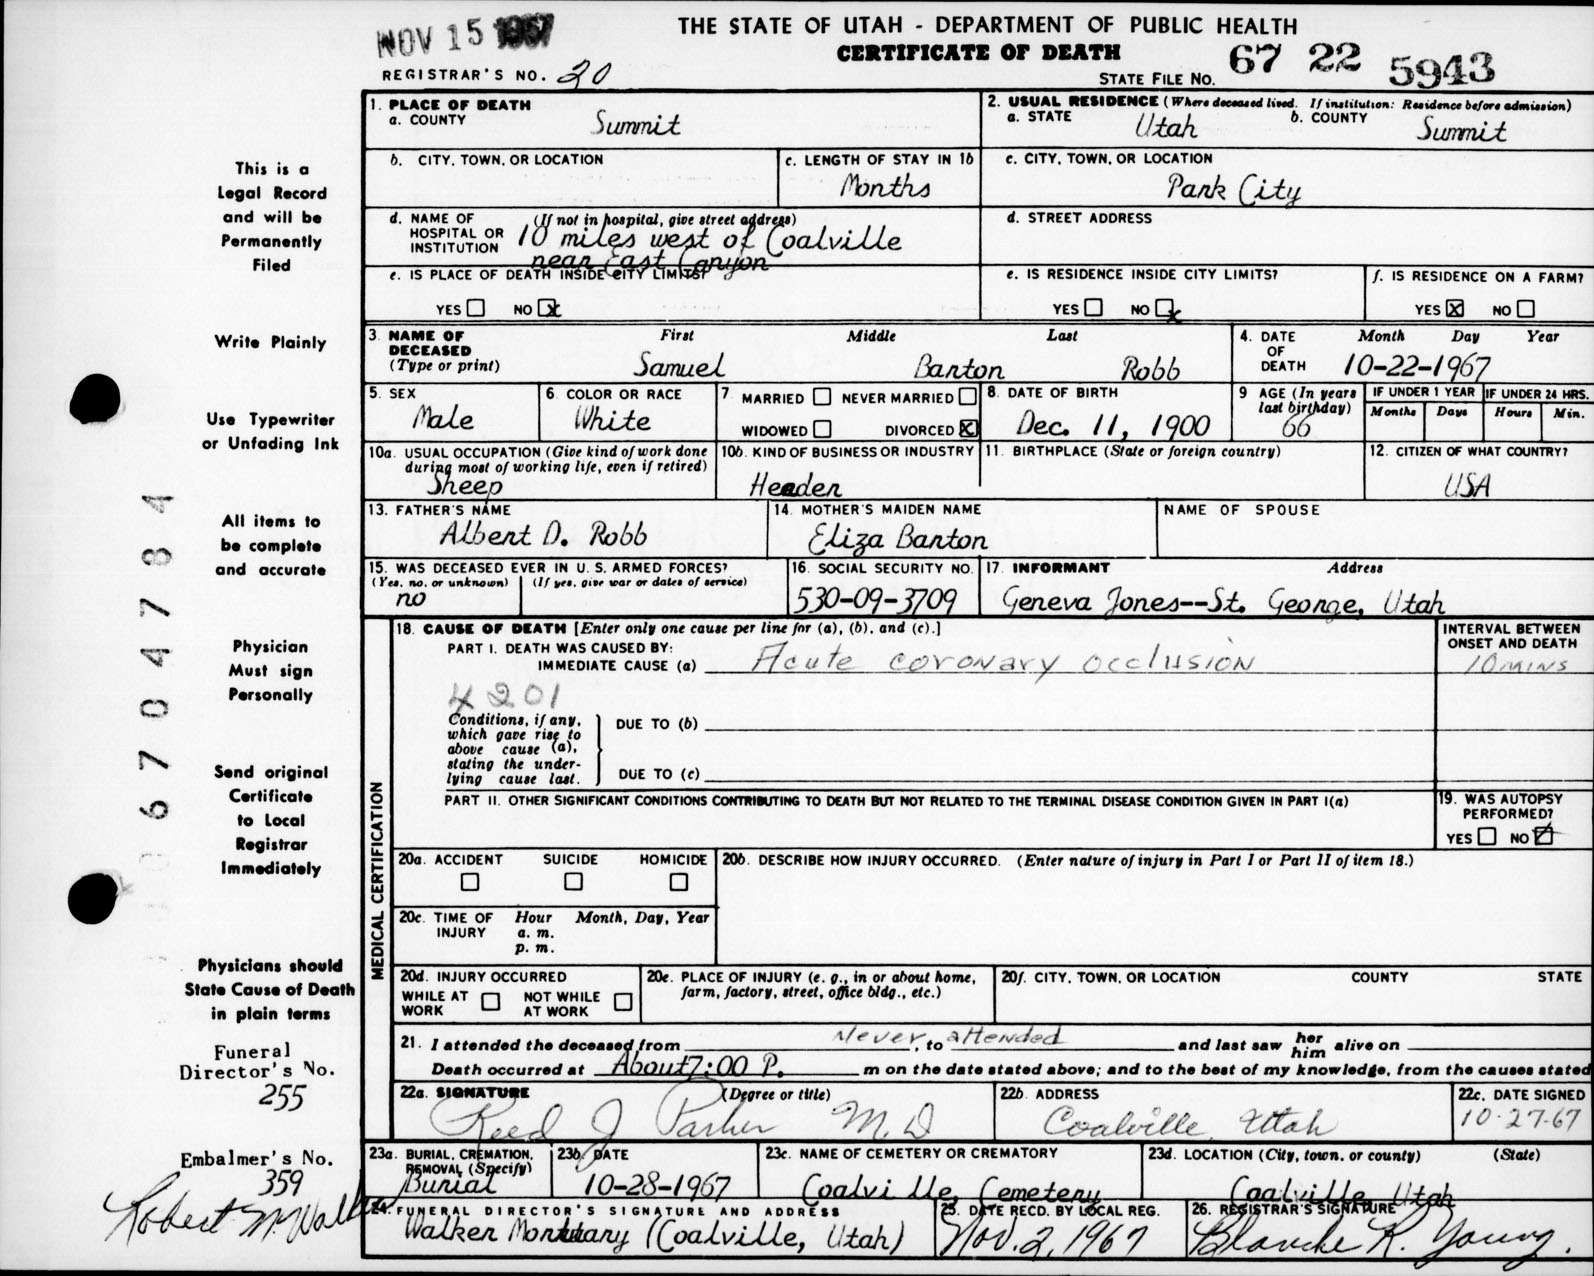 NOV 15 1967
THE STATE OF UTAH - DEPARTMENT OF PUBLIC HEALTH
CERTIFICATE OF DEATH
REGISTRAR'S NO. 20
STATE FILE NO. 67 22 5943
This is a
Legal Record
and will be
Permanently
Filed
Write Plainly
Use Typewriter
or Unfading Ink
All items to
be complete
and accurate
Physician
Must sign
Personally
Send original
Certificate
to Local
Registrar
Immediately
Physicians should
State Cause of Death
in plain terms
Funeral
Director's No.
255
Embalmer's No.
359
Robert M. Walker
6704784
1. PLACE OF DEATH
a. COUNTY Summit
2. USUAL RESIDENCE (Where deceased lived. If institution: Residence before admission)
a. STATE Utah b. COUNTY Summit
b. CITY, TOWN, OR LOCATION
c. LENGTH OF STAY IN 1b
Months
c. CITY, TOWN, OR LOCATION
Park City
d. NAME OF HOSPITAL OR INSTITUTION (If not in hospital, give street address)
10 miles west of Coalville
near East Canyon
d. STREET ADDRESS
e. IS PLACE OF DEATH INSIDE CITY LIMITS?
YES NO x
e. IS RESIDENCE INSIDE CITY LIMITS?
YES NO x
f. IS RESIDENCE ON A FARM?
YES x NO
3. NAME OF DECEASED (Type or print)
First Middle Last
Samuel Barton Robb
4. DATE OF DEATH Month Day Year
10-22-1967
5. SEX
Male
6. COLOR OR RACE
White
7 MARRIED NEVER MARRIED
WIDOWED DIVORCED x
8. DATE OF BIRTH
Dec. 11, 1900
9 AGE (In years last birthday)
66
IF UNDER 1 YEAR
Months Days
IF UNDER 24 HRS.
Hours Min.
10a. USUAL OCCUPATION (Give kind of work done during most of working life, even if retired)
Sheep
10b. KIND OF BUSINESS OR INDUSTRY
Header
11. BIRTHPLACE (State or foreign country)
12. CITIZEN OF WHAT COUNTRY?
USA
13. FATHER'S NAME
Albert D. Robb
14. MOTHER'S MAIDEN NAME
Eliza Barton
NAME OF SPOUSE
15. WAS DECEASED EVER IN U. S. ARMED FORCES?
(Yes, no, or unknown) (If yes, give war or dates of service)
no
16. SOCIAL SECURITY NO.
530-09-3709
17. INFORMANT Address
Geneva Jones--St. George, Utah
MEDICAL CERTIFICATION
18. CAUSE OF DEATH [Enter only one cause per line for (a), (b), and (c).]
INTERVAL BETWEEN ONSET AND DEATH
PART I. DEATH WAS CAUSED BY:
IMMEDIATE CAUSE (a) Acute coronary occlusion 10 mins
4201
Conditions, if any, which gave rise to above cause (a), stating the underlying cause last.
DUE TO (b)
DUE TO (c)
PART II. OTHER SIGNIFICANT CONDITIONS CONTRIBUTING TO DEATH BUT NOT RELATED TO THE TERMINAL DISEASE CONDITION GIVEN IN PART I(a)
19. WAS AUTOPSY PERFORMED?
YES NO
20a. ACCIDENT SUICIDE HOMICIDE
20b. DESCRIBE HOW INJURY OCCURRED. (Enter nature of injury in Part I or Part II of item 18.)
20c. TIME OF INJURY Hour Month, Day, Year
a. m.
p. m.
20d. INJURY OCCURRED
WHILE AT WORK NOT WHILE AT WORK
20e. PLACE OF INJURY (e. g., in or about home, farm, factory, street, office bldg., etc.)
20f. CITY, TOWN, OR LOCATION COUNTY STATE
21. I attended the deceased from Never, to attended and last saw her him alive on
Death occurred at About 7:00 P. m on the date stated above; and to the best of my knowledge, from the causes stated
22a. SIGNATURE (Degree or title)
Reed J Parker M.D
22b. ADDRESS
Coalville, Utah
22c. DATE SIGNED
10-27-67
23a. BURIAL, CREMATION, REMOVAL (Specify)
Burial
23b. DATE
10-28-1967
23c. NAME OF CEMETERY OR CREMATORY
Coalville, Cemetery
23d. LOCATION (City, town, or county) (State)
Coalville, Utah
24. FUNERAL DIRECTOR'S SIGNATURE AND ADDRESS
Walker Mortuary (Coalville, Utah)
25. DATE RECD. BY LOCAL REG.
Nov. 2, 1967
26. REGISTRAR'S SIGNATURE
Blanche R. Young.